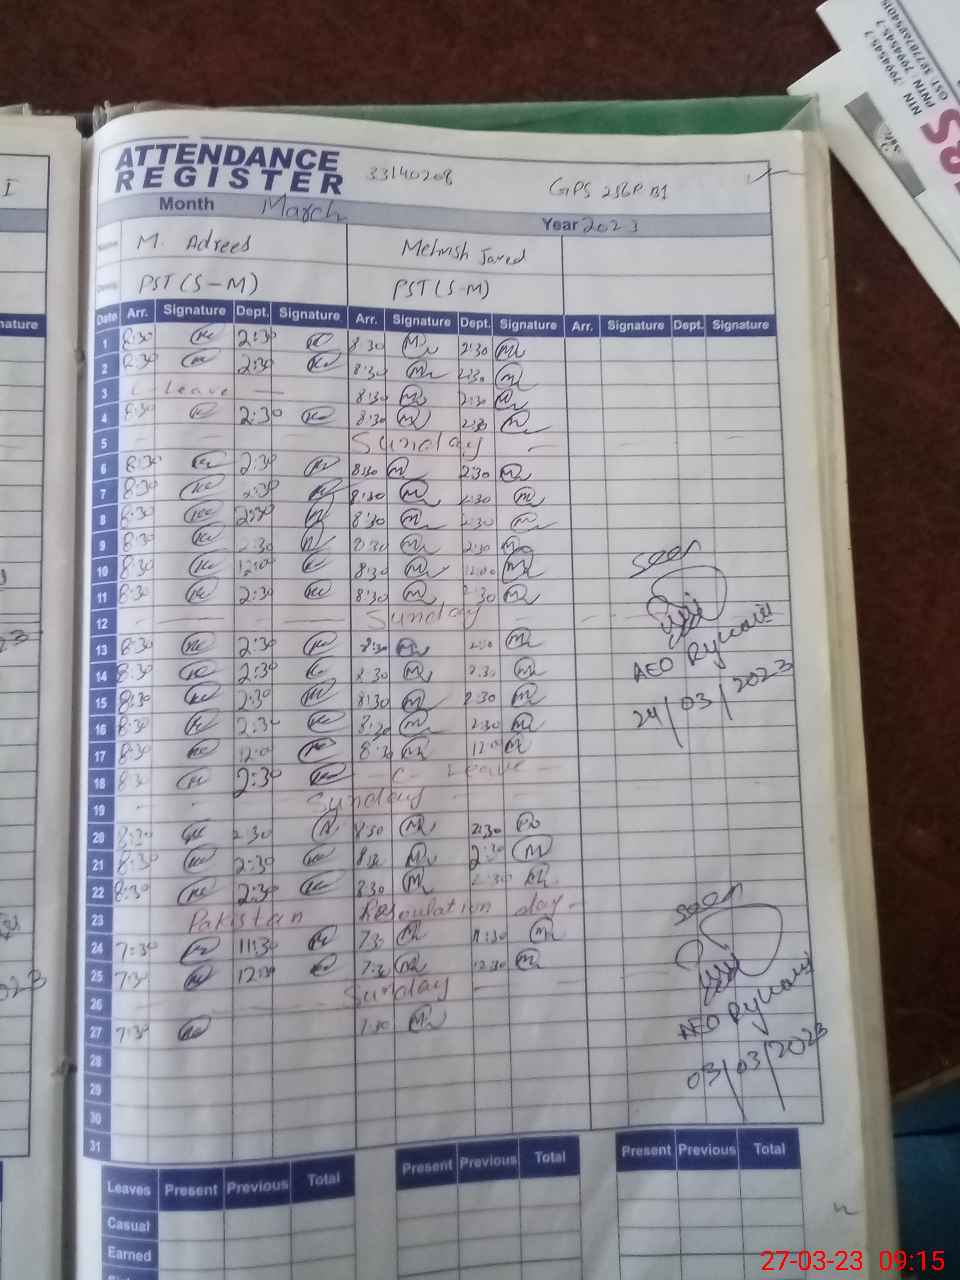 NTN : 7994545-7
PNTN : 7994545-7
GST: 3277876254015
ATTENDANCE
REGISTER
33140208
GPS 258P B1
Month March
Year 2023
M. Adrees Mehvish Javed
PST (S-M) PST (S-M)
Date Arr. Signature Dept. Signature Arr. Signature Dept. Signature Arr. Signature Dept. Signature
1 8:30 2:30 8:30 2:30
2 8:30 2:30 8:30 2:30
3 C- Leave — 8:30 2:30
4 8:30 2:30 8:30 2:30
5 Sunday
6 8:30 2:30 8:30 2:30
7 8:30 2:30 8:30 2:30
8 8:30 2:30 8:30 2:30
9 8:30 2:30 8:30 2:30
10 8:30 12:00 8:30 12:00
11 8:30 2:30 8:30 2:30
12 Sunday
13 8:30 2:30 8:30 2:30
14 8:30 2:30 8:30 2:30
15 8:30 2:30 8:30 2:30
16 8:30 2:30 8:30 2:30
17 8:30 12:0 8:30 12:0
18 8:30 2:30 C- Leave —
19 Sunday
20 8:30 2:30 8:30 2:30
21 8:30 2:30 8:30 2:30
22 8:30 2:30 8:30 2:30
23 Pakistan Resoulation day-
24 7:30 11:30 7:30 11:30
25 7:30 12:30 7:30 12:30
26 Sunday
27 7:30 7:30
28
29
30
31
seen
AEO
24/03/2023
seen
AEO
03/03/2023
Leaves Present Previous Total Present Previous Total Present Previous Total
Casual
Earned
27-03-23 09:15